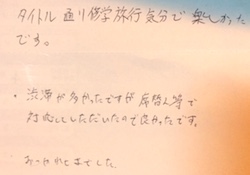 タイトル通り修学旅行気分で楽しかった
です。
・渋滞が多かったですが席替え等で
対応してしただいたので良かったです。
おつかれさまでした